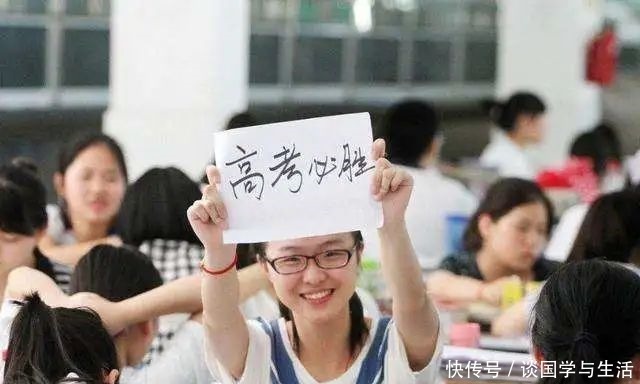 高考必胜
快传号 / 谈国学与生活